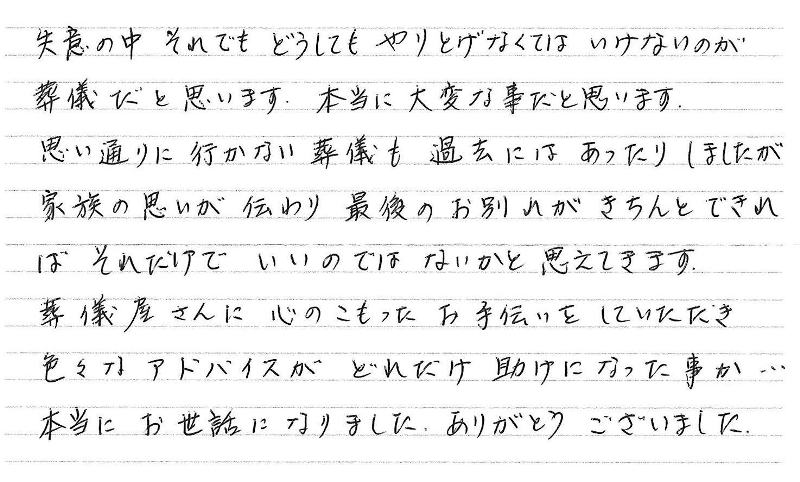 失意の中 それでも どうしても やりとげなくては いけないのが
葬儀だと思います. 本当に大変な事だと思います.
思い通りに 行かない 葬儀も 過去には あったり しましたが
家族の思いが 伝わり 最後の お別れが きちんと できれ
ば それだけで いいのでは ないかと 思えてきます.
葬儀屋さんに 心のこもった お手伝いを していただき
色々な アドバイスが どれだけ 助けになった事か…
本当に お世話になりました. ありがとう ございました.